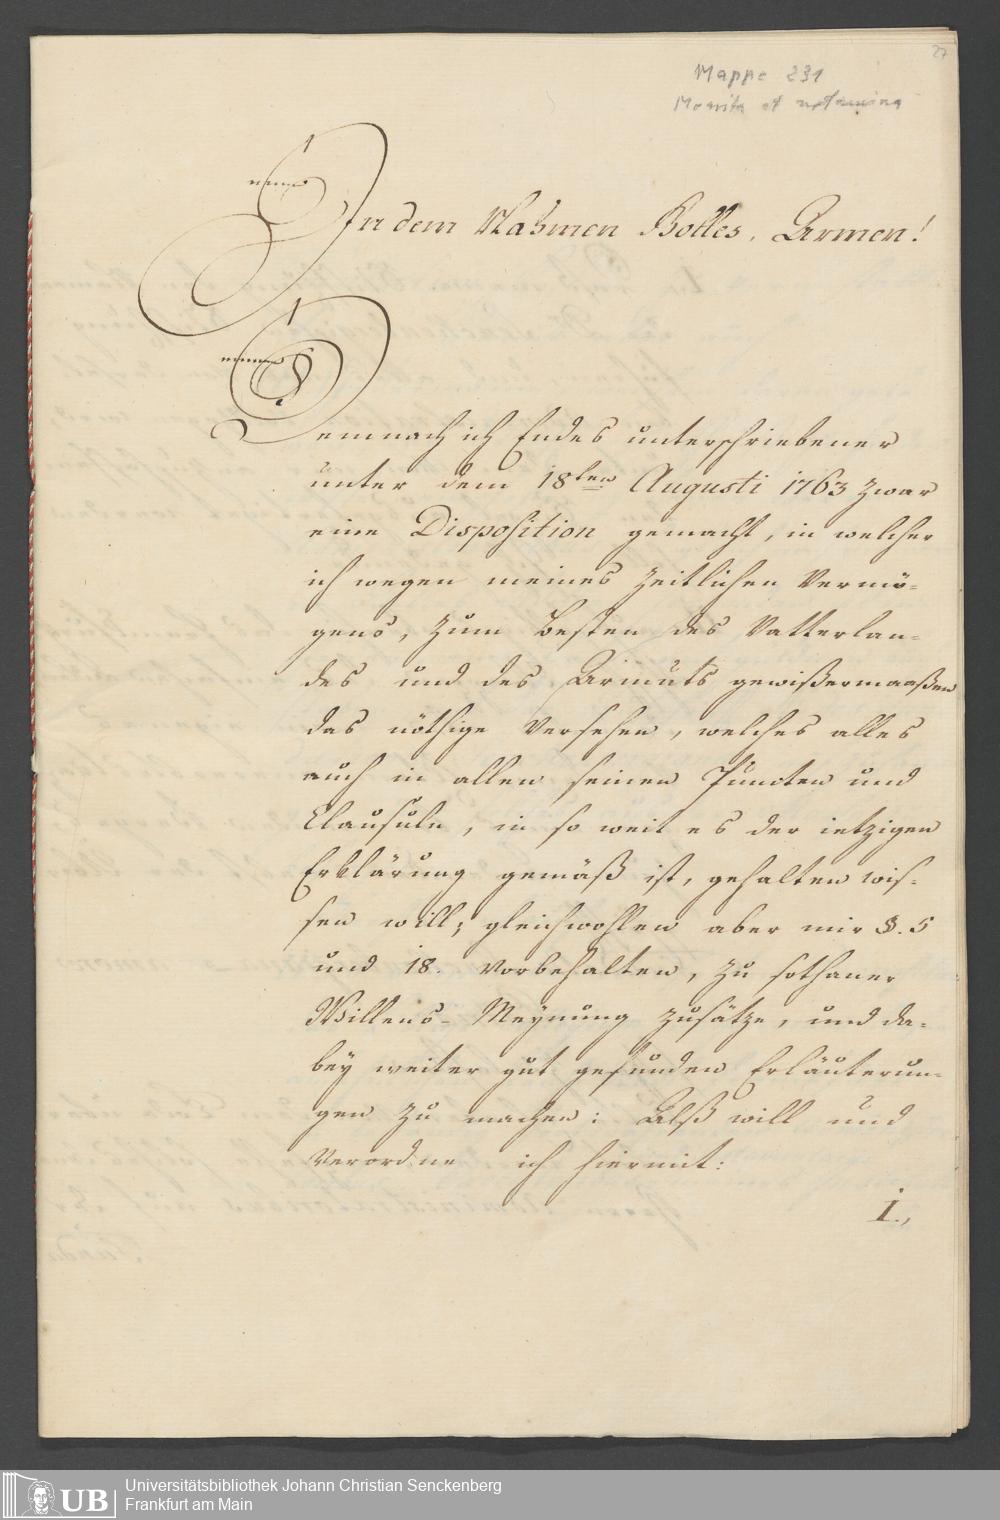 27
Mappe 231
Monita et
In dem Nahmen Gottes, Armen!
Demnach ich Endes unterschriebener
unter dem 18ten Augusti 1763 zwar
eine Disposition gemacht, in welcher
ich wegen meines zeitlichen Vermö-
gens, zum Besten des Vatterlan-
des und des Armuts gewißermaaßen
das nöthige Versehen, welches alles
auch in allen seinen Puncten und
Clausuln, in so weit es der ietzigen
Erklärung gemäß ist, gehalten wis-
sen will; gleichwohlen aber mir §. 5
und 18. vorbehalten, zu sothaner
Willens-Meynung zusätze, und da-
bey weiter gut gefunden Erläuterun-
gen zu machen: Alß will und
Verordne ich hiermit:
1.,
UB
Universitätsbibliothek Johann Christian Senckenberg
Frankfurt am Main